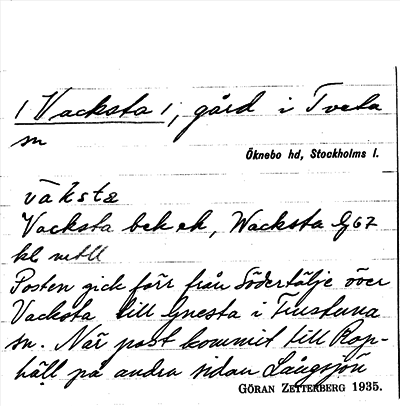 / Vacksta /, gård i Tveta
sn
Öknebo hd, Stockholms l.
väksta
Vacksta bekek, Wacksta G67
kl mtll
Posten gick förr från Södertälje över
Vacksta till Gnesta i Frustuna
sn. När post kommit till Rop-
häll på andra sidan Långsjön
GÖRAN ZETTERBERG 1935.